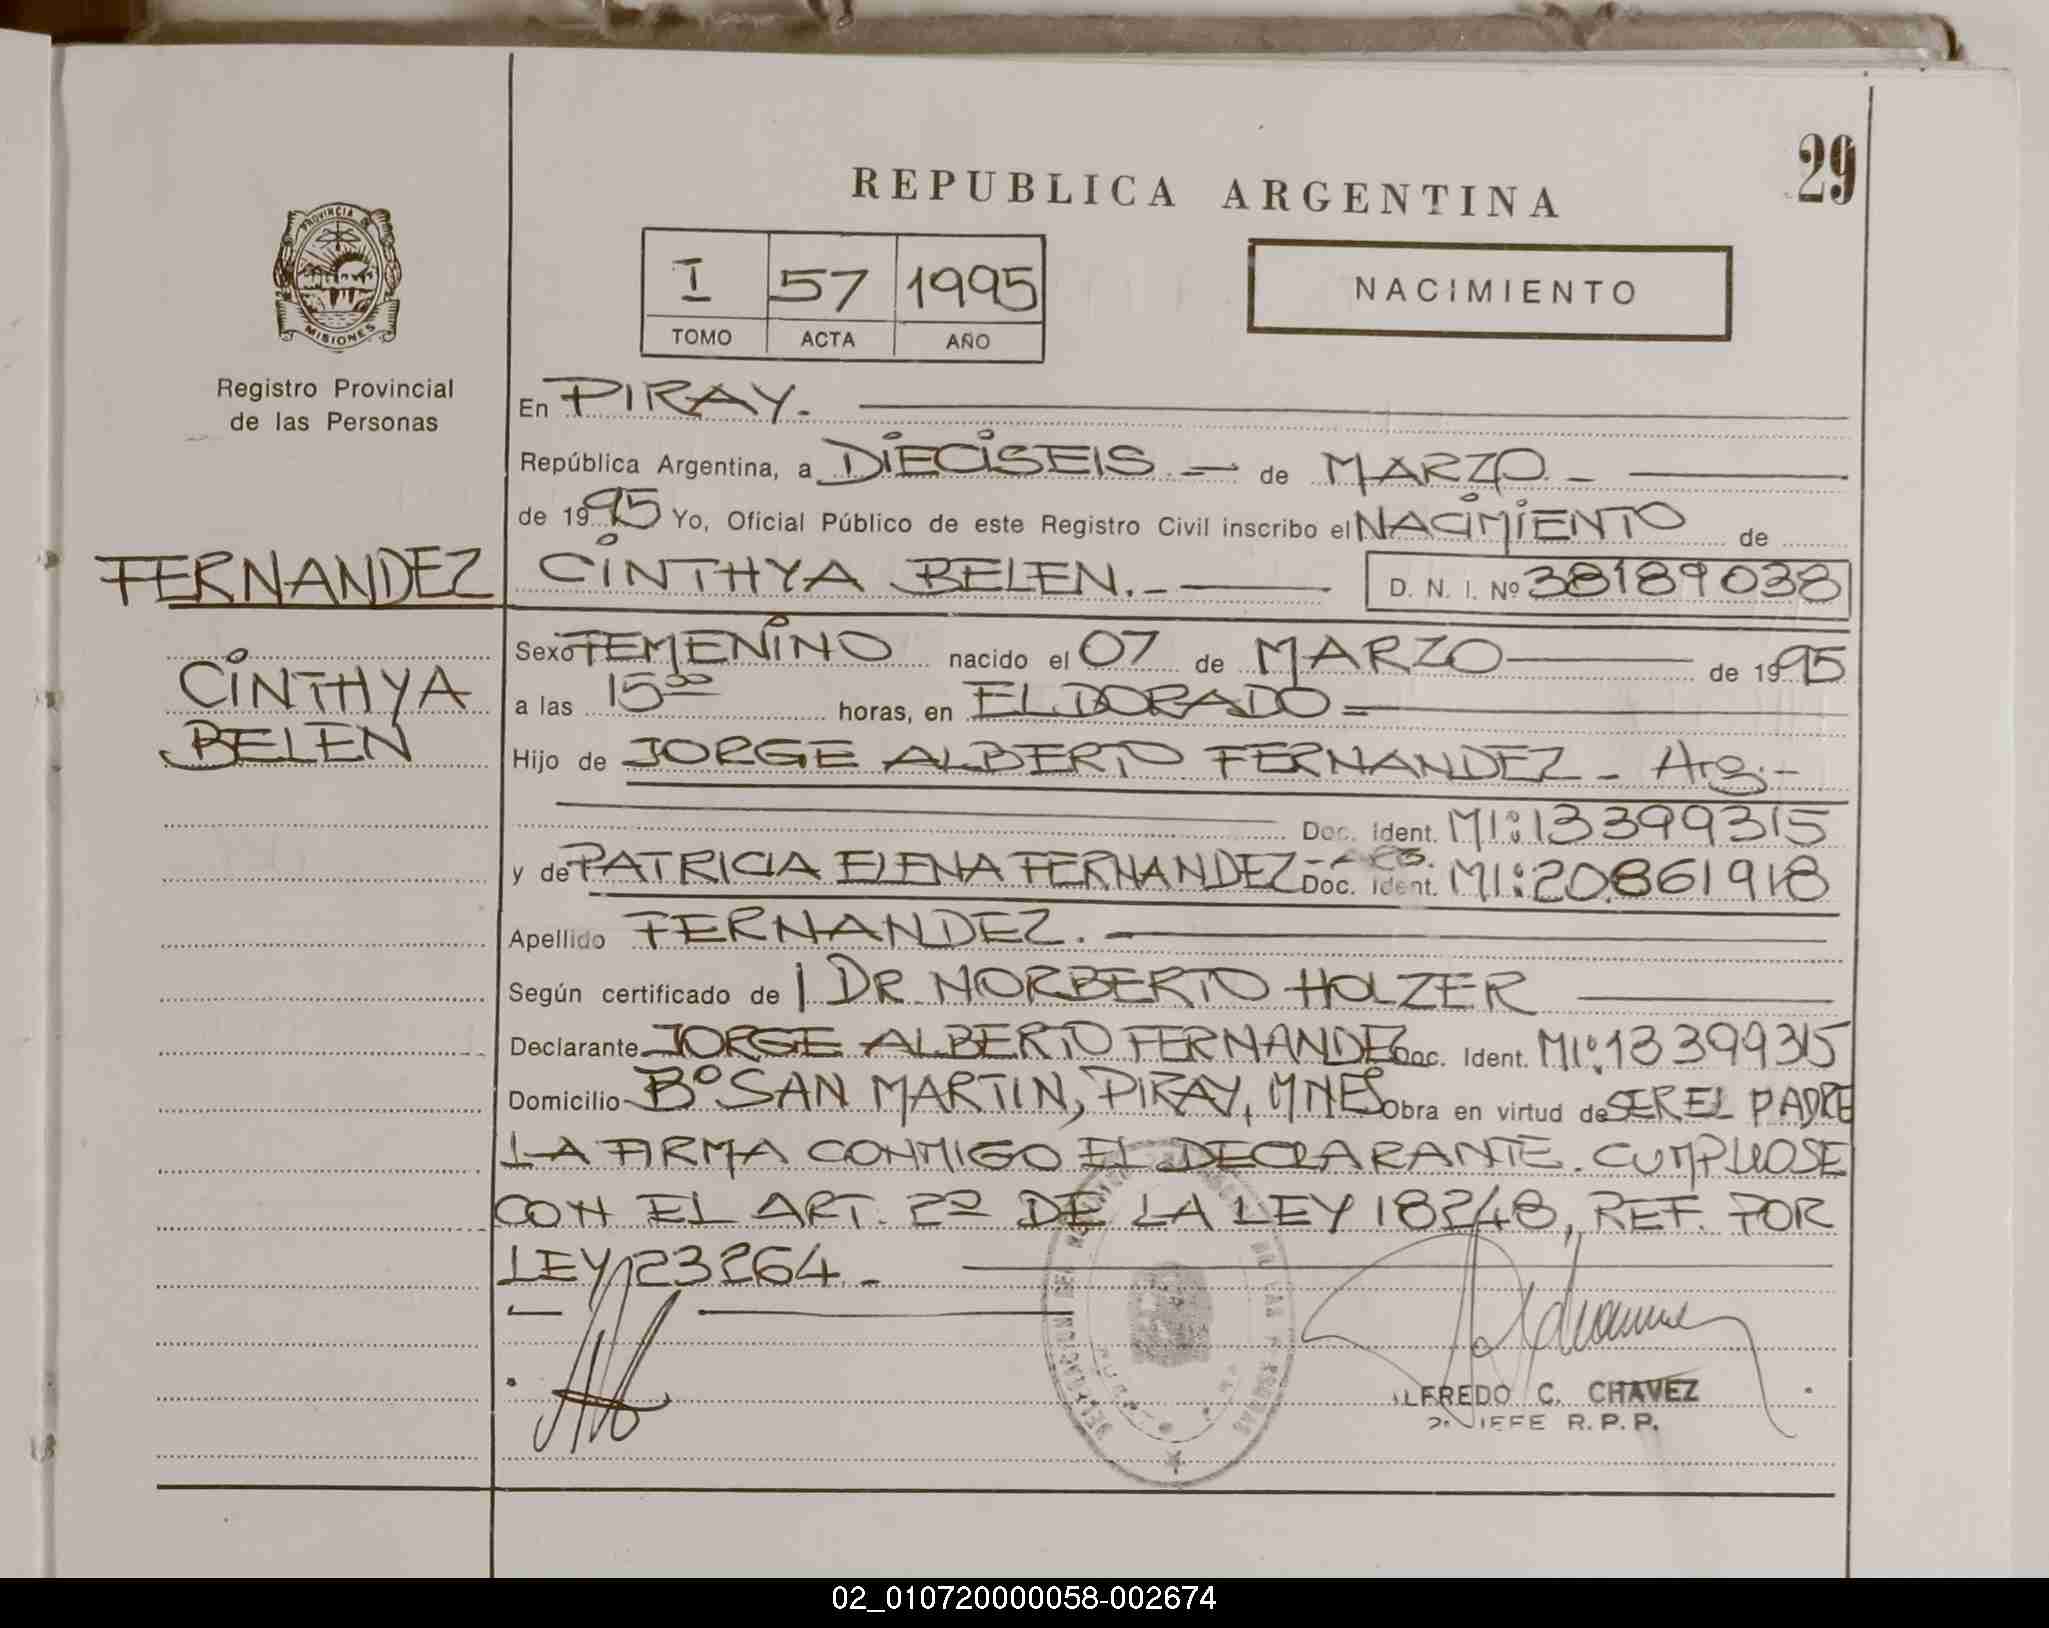 29
REPUBLICA ARGENTINA
PROVINCIA DE
MISIONES
I 57 1995
TOMO ACTA AÑO
NACIMIENTO
Registro Provincial
de las Personas
En PIRAY.
República Argentina, a DIECISEIS de MARZO
de 1995 Yo, Oficial Público de este Registro Civil inscribo el NACIMIENTO de
FERNANDEZ CINTHYA BELEN. D. N. I. Nº 38189038
CINTHYA
BELEN
Sexo FEMENINO nacido el 07 de MARZO de 1995
a las 15⁰⁰ horas, en ELDORADO
Hijo de JORGE ALBERTO FERNANDEZ - Arg.-
Doc. Ident. MI: 13399315
y de PATRICIA ELENA FERNANDEZ - Doc. Ident. MI: 20.861918
Apellido FERNANDEZ.
Según certificado de l DR NORBERTO HOLZER
Declarante JORGE ALBERTO FERNANDEZ Doc. Ident. MI: 13399315
Domicilio Bº SAN MARTIN, PIRAY, MNES Obra en virtud de SER EL PADRE
LA FIRMA CONMIGO EL DECLARANTE. CUMPLIOSE
CON EL ART. 2º DE LA LEY 18248, REF. POR
LEY 23264.-
LFREDO C. CHAVEZ
JEFE R.P.P.
02_010720000058-002674